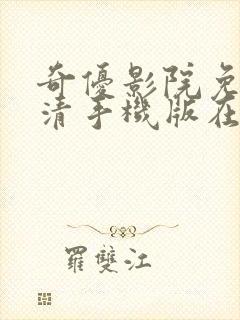 奇優影院免
清手機版在
羅雙江